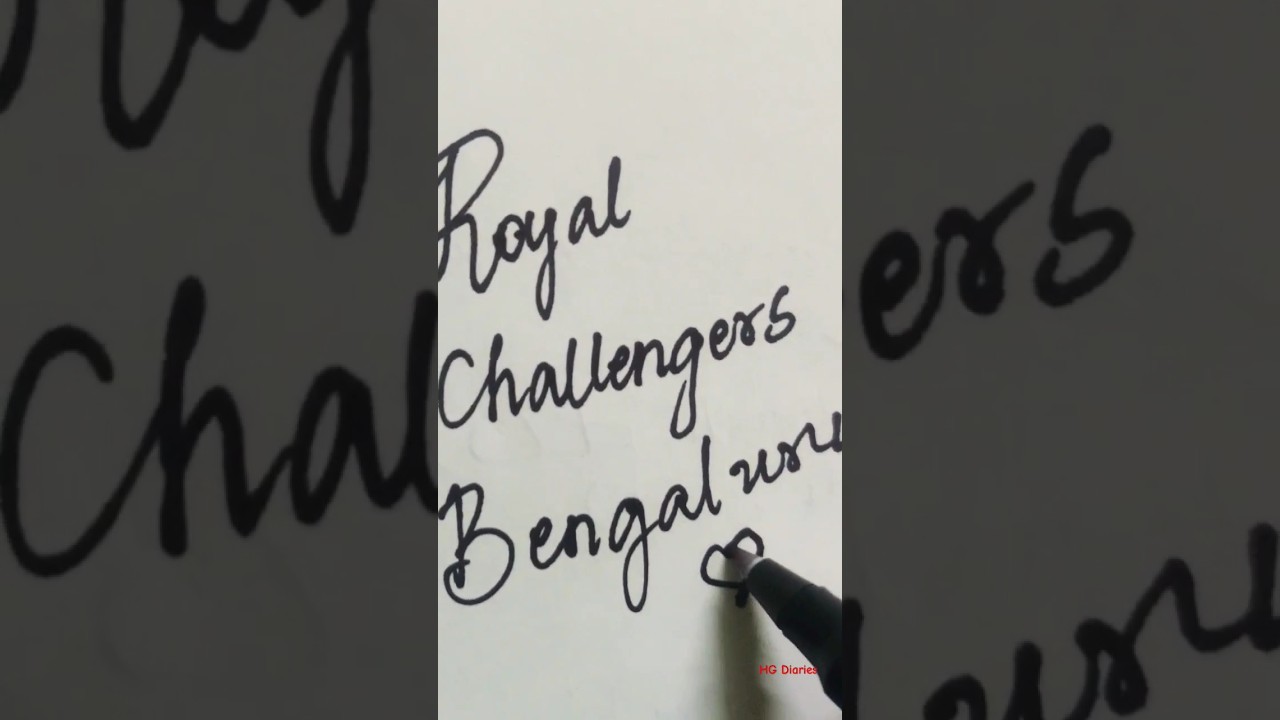 Royal
Challengers
Bengaluru
HG Diaries